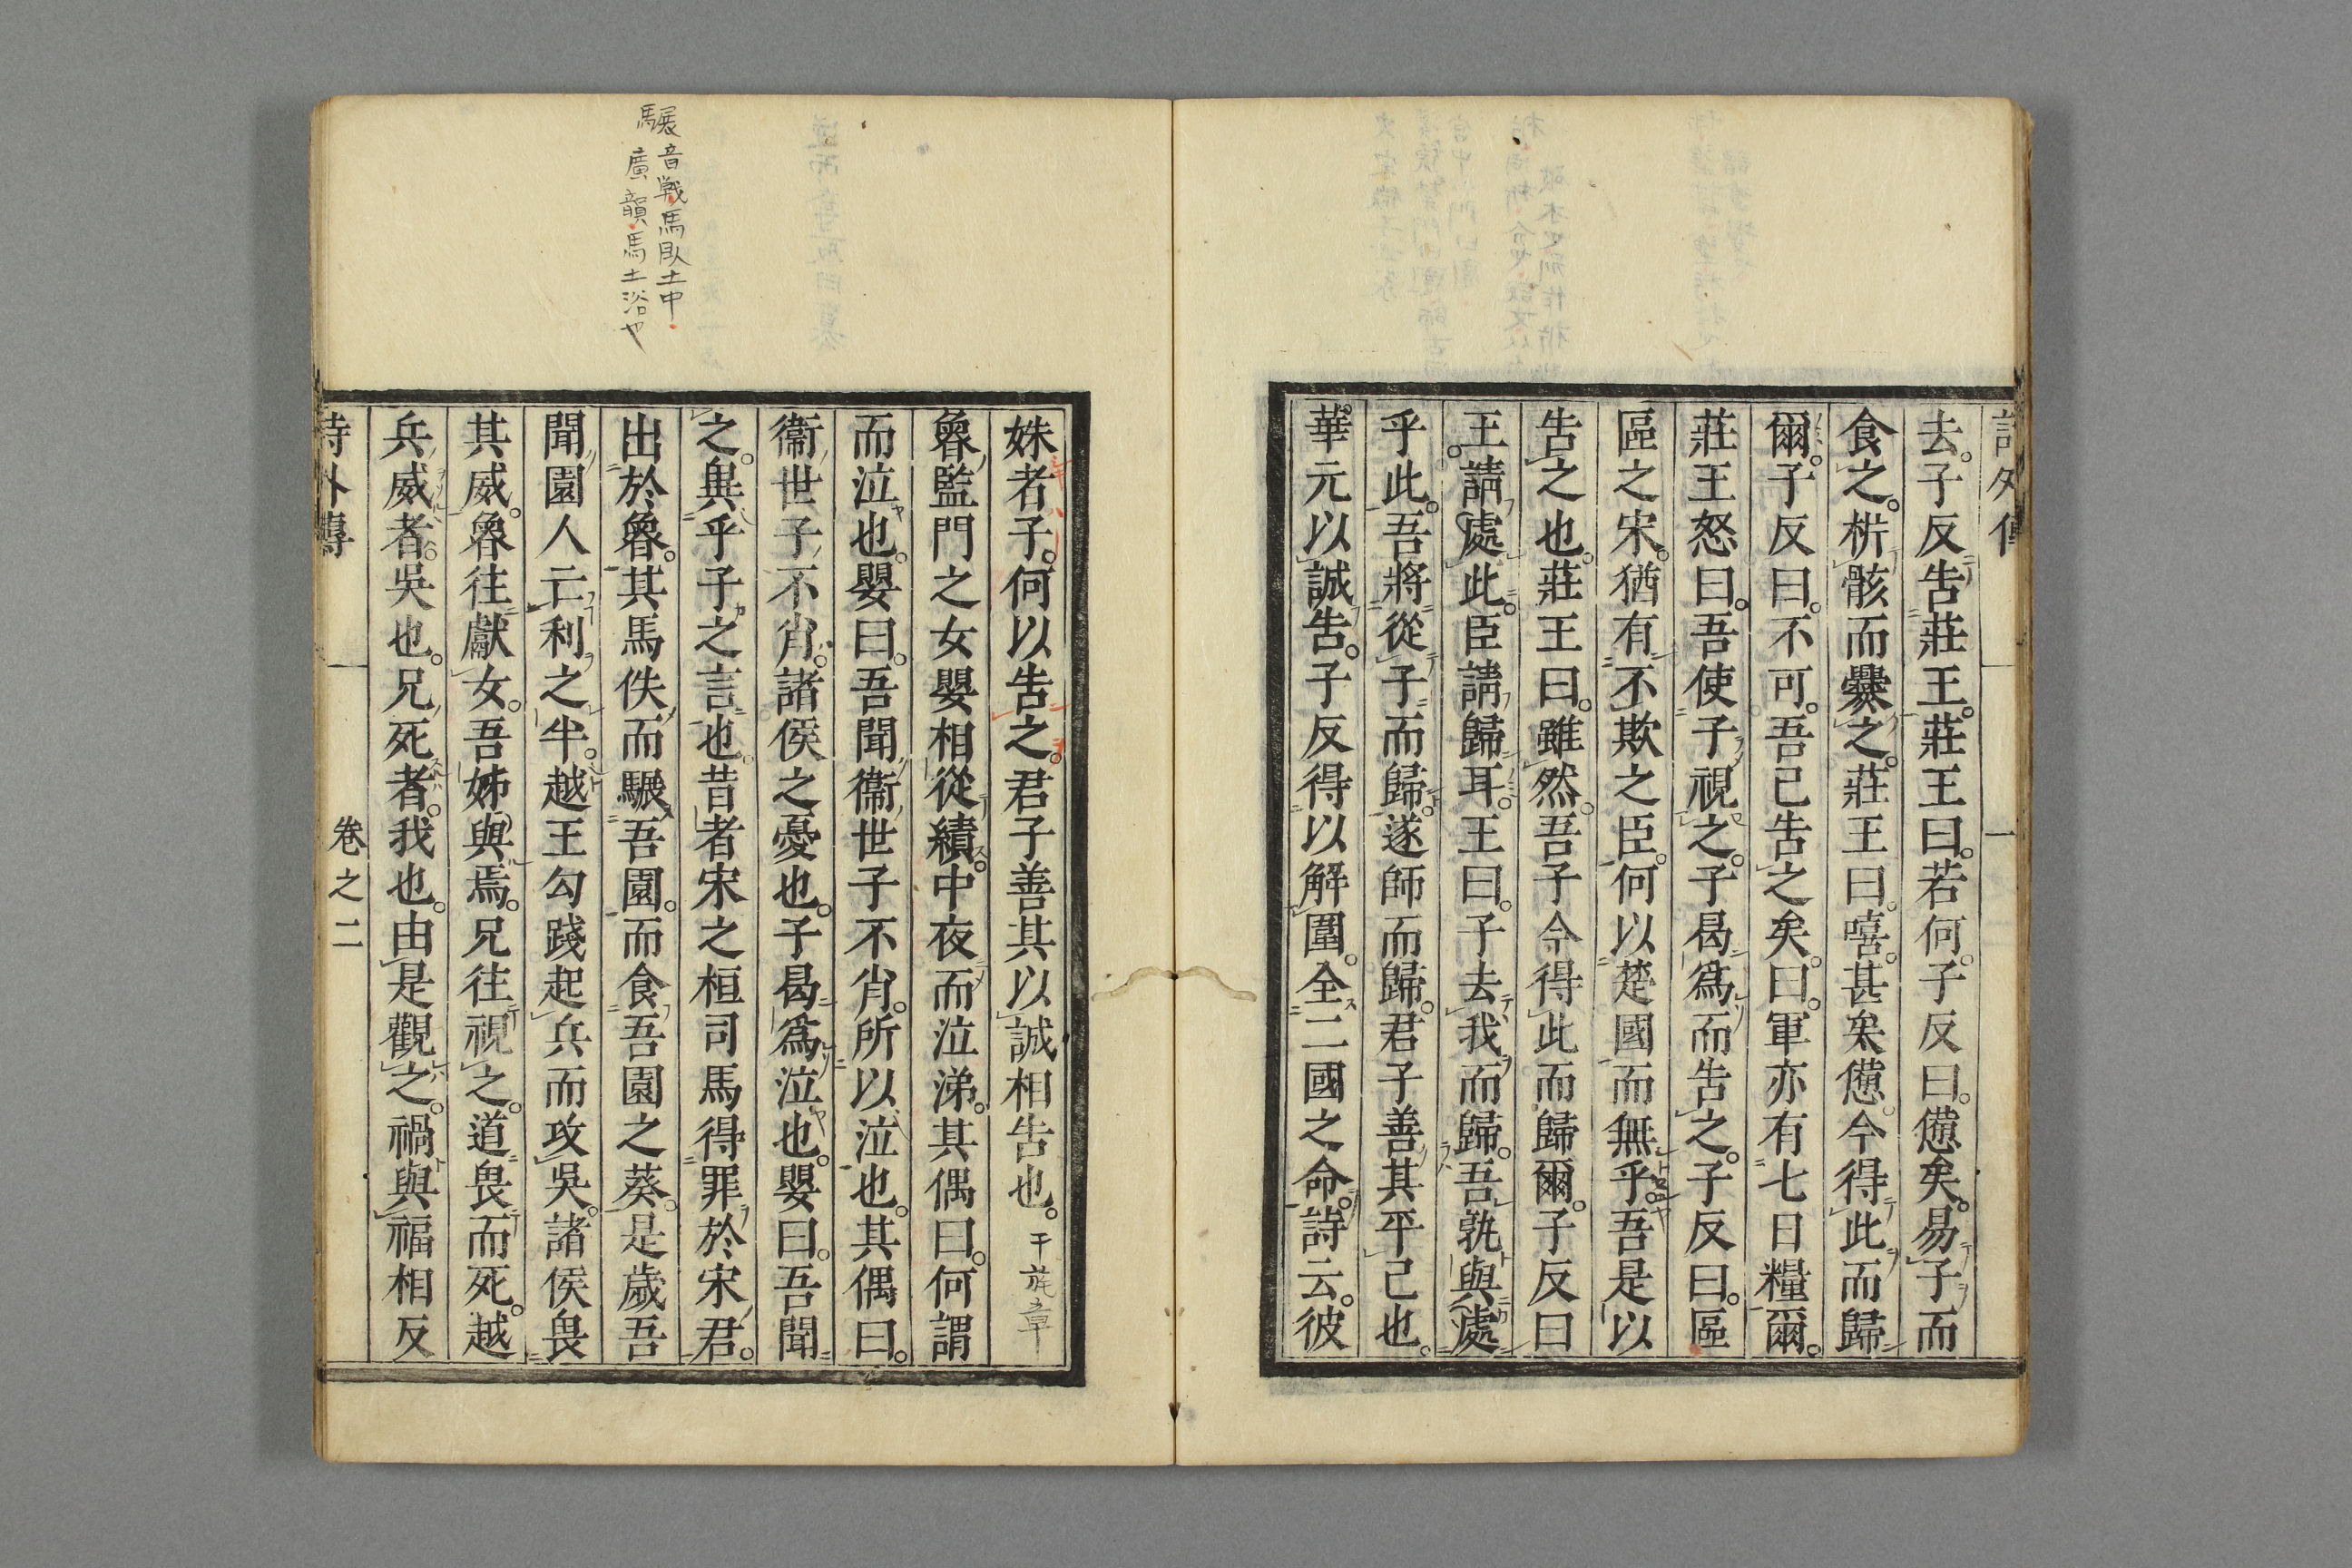 去。子反告莊王。莊王曰。若何。子反曰。憊矣。易子而
食之。析骸而爨之。莊王曰。嘻。甚矣憊。今得此而歸
爾。子反曰。不可。吾已告之矣。曰。軍亦有七日糧爾。
莊王怒曰。吾使子視之。子曷爲而告之。子反曰。區
區之宋。猶有不欺之臣。何以楚國而無乎。吾是以
告之也。莊王曰。雖然。吾子今得此而歸爾。子反曰
王。請處此。臣請歸耳。王曰。子去我而歸。吾孰與處
乎此。吾將從子而歸。遂師而歸。君子善其平己也。
華元以誠告。子反得以解圍。全二國之命。詩云。彼
姝者子。何以告之。君子善其以誠相告也。干旄章
魯監門之女嬰相從績。中夜而泣涕。其偶曰。何謂
而泣也。嬰曰。吾聞衞世子不肖。所以泣也。其偶曰。
衞世子不肖。諸侯之憂也。子曷爲泣也。嬰曰。吾聞
之。異乎子之言也。昔者宋之桓司馬得罪於宋君。
出於魯。其馬佚而驏吾園。而食吾園之葵。是歲吾
聞園人亡利之半。越王勾踐起兵而攻吳。諸侯畏
其威。魯往獻女。吾姊與焉。兄往視之。道畏而死。越
兵威者。吳也。兄死者。我也。由是觀之。禍與福相反
詩外傳
卷之二
驏音戰馬臥土中
廣韻馬土浴也